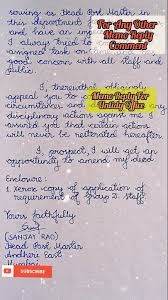 serving as Head Post Master in
this department
and have an
For Any Other
Memo Reply
Comment
I always need to
assigned task
good concern with all staff and
public.
I, therewith obligingly
appeal you to
Memo Reply For
Untidy Office
circumstances and
disciplinary actions against me I
assured you that certain actions
will never be reiterated hereafter
I, prospect, I will get an
opportunity to amend my deed
Enclosure:
1. Xerox copy of application of
requirement of group D. staff
Yours faithfully
(SANJAY RAO)
Head Post Master
Andheri East
Mumbai
SUBSCRIBE